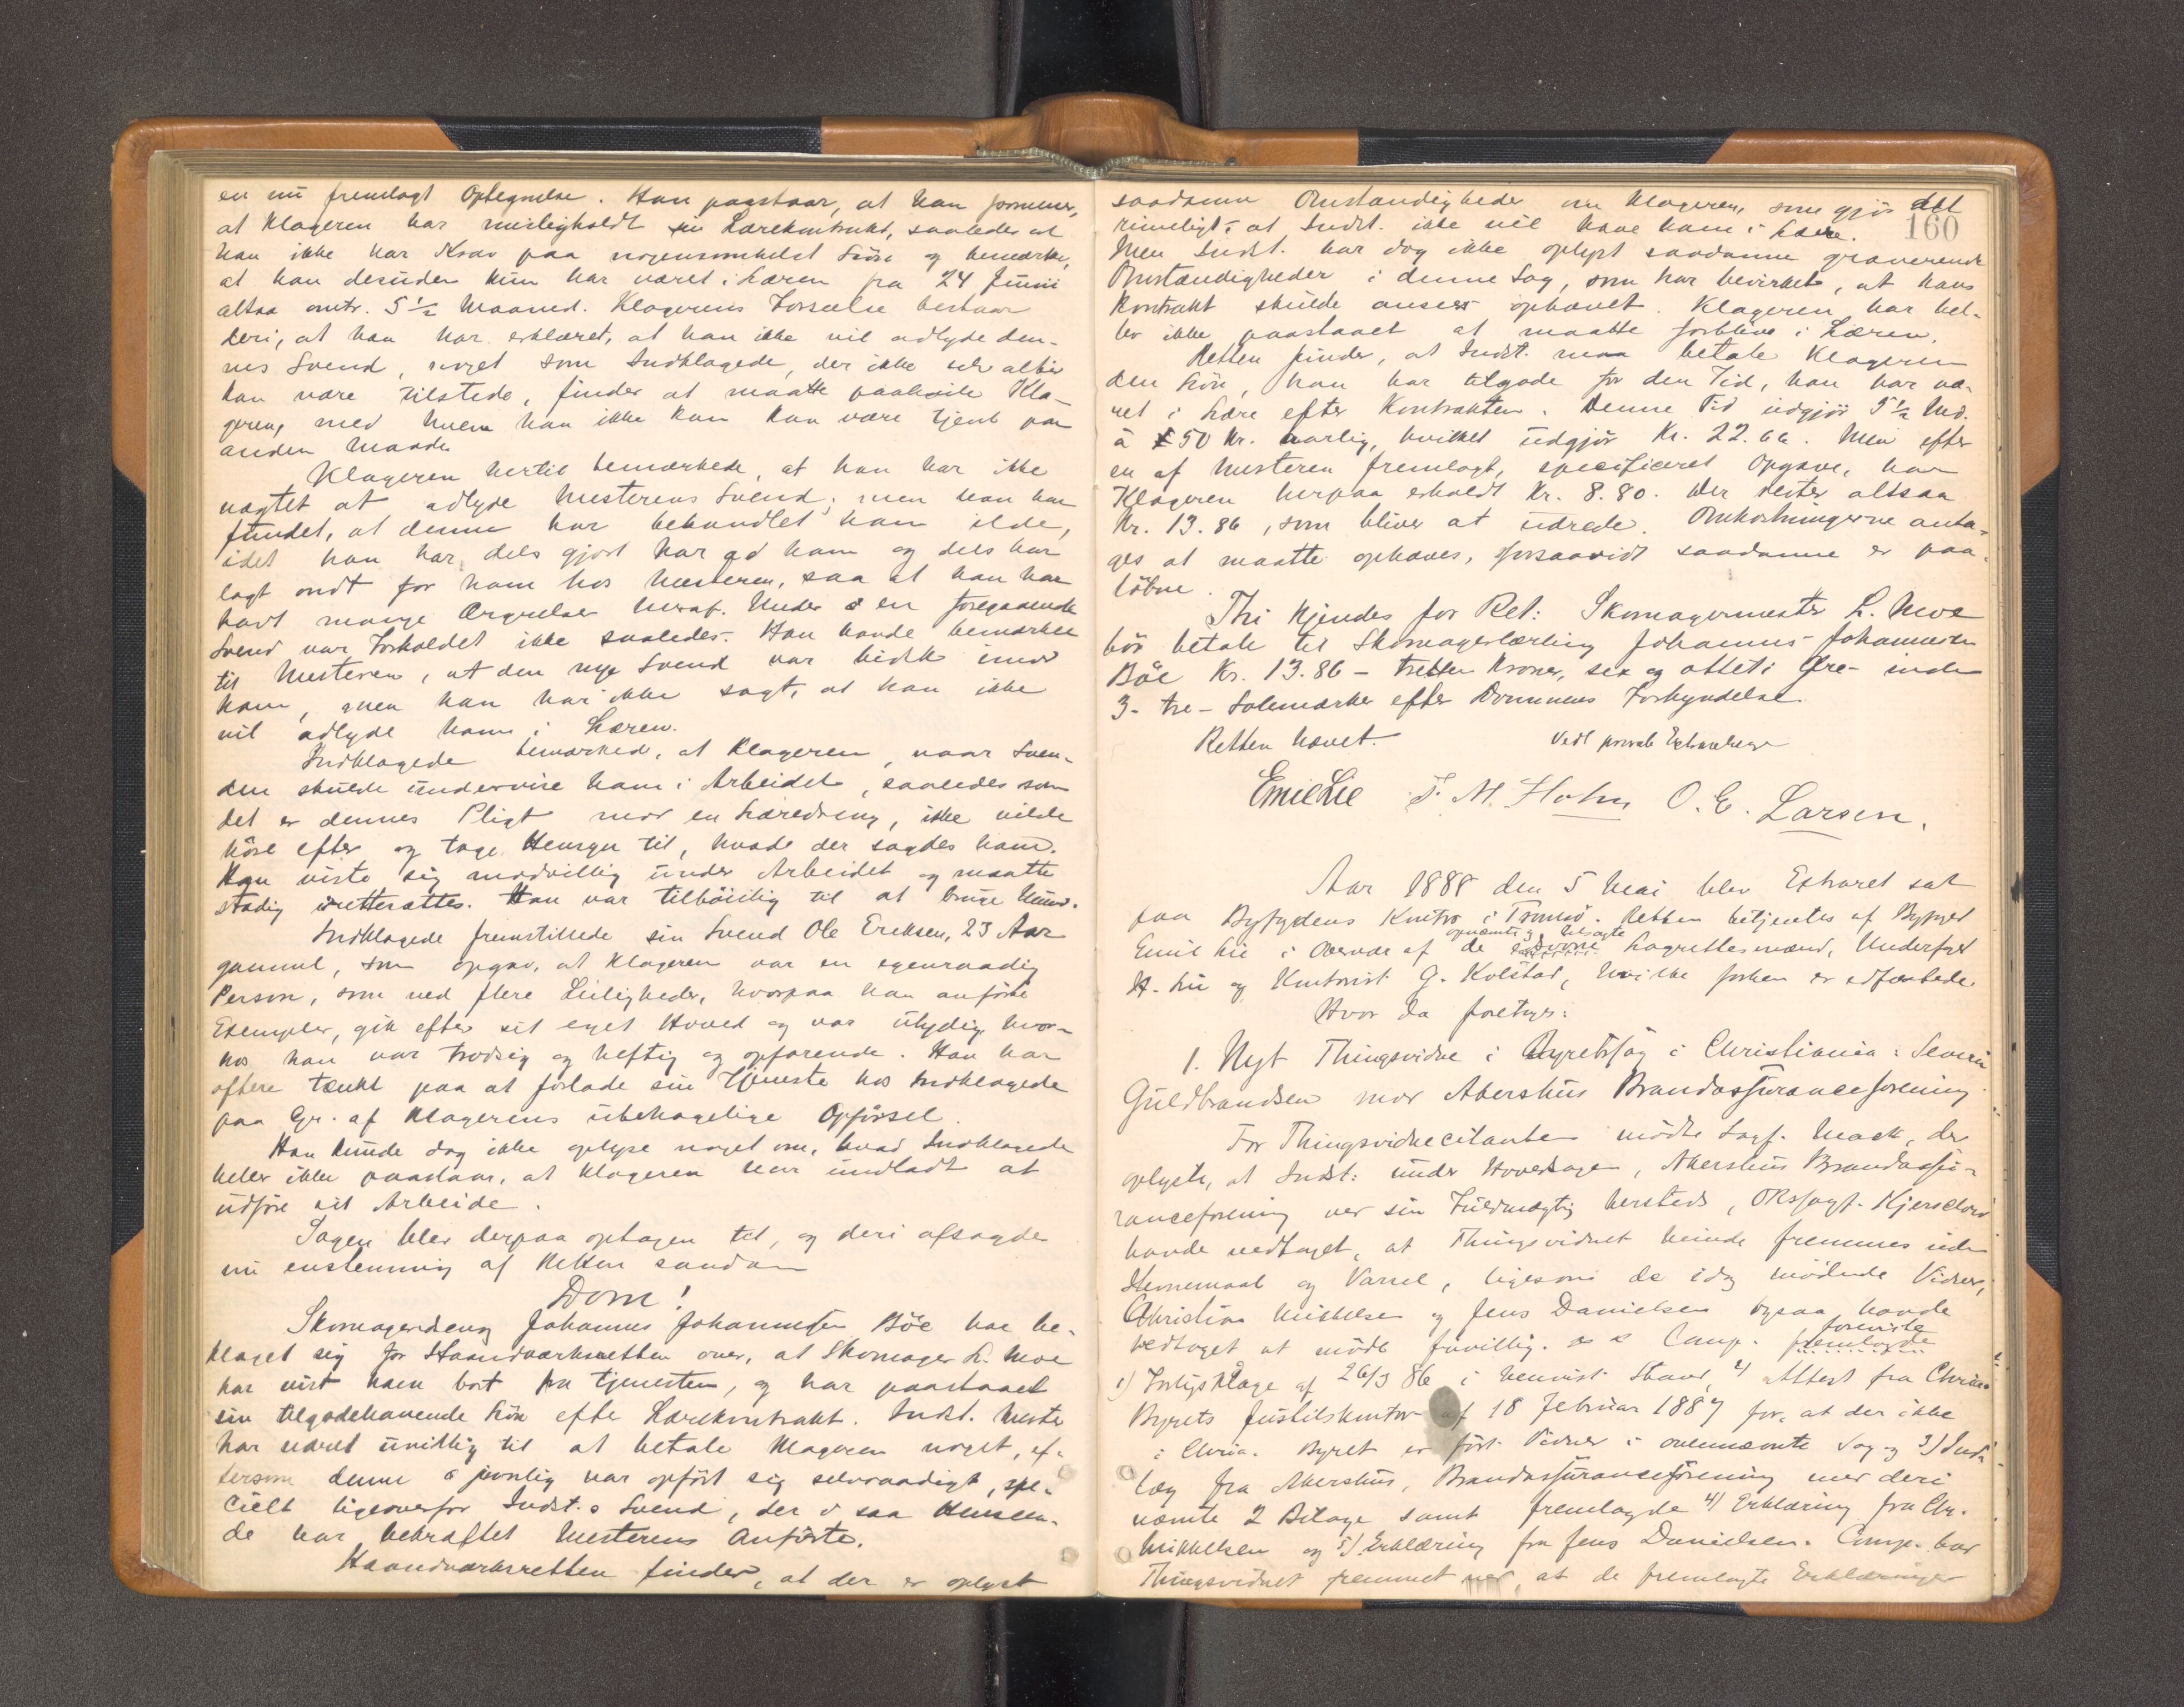 en nu fremlagt Optegnelse. Han paastaar, at han formener,
at Klageren har misligholdt sin Lærekontrakt, saaledes at
han ikke har Krav paa nogensomhelst Løn og bemærker,
at han desuden kun har været i Læren fra 24 Juni
altsaa omtr. 5 1/2 Maaned. Klagerens Forseelse bestaar
deri, at han har erklæret, at han ikke vil adlyde den-
nes Svend, noget som Indklagede, der ikke selv altid
kan være tilstede, finder at maatte paahvile Kla-
geren, med hvem han ikke kan kan være tjent paa
anden Maade.
Klageren hertil bemærkede, at han har ikke
nægtet at adlyde Mesterens Svend; men han har
fundet, at denne har behandlet ham ilde,
idet han har dels gjort Nar ad ham og dels har
lagt ondt for ham hos Mesteren, saa at han har
havt mange Ærgrelser heraf. Under en foregaaende
Svend var Forholdet ikke saaledes. Han havde bemærket
til Mesteren, at den nye Svend var hidsk imod
ham, men han har ikke sagt, at han ikke
vil adlyde ham i Læren.
Indklagede bemærkede, at Klageren, naar Sven-
den skulde undervise ham i Arbeidet, saaledes som
det er dennes Pligt mod en Læredreng, ikke vilde
høre efter og tage Hensyn til, hvad der sagdes ham.
Han viste sig modvillig under Arbeidet og maatte
stadig irettesættes. Han var tilbøielig til at bruge Mund.
Indklagede fremstillede sin Svend Ole Eriksen, 23 Aar
gammel, som opgav, at Klageren var en egenraadig
Person, som ved flere Leiligheder, hvorpaa han anførte
Exempler, gik efter sit eget Hoved og var ulydig, hvor-
hos han var trodsig og heftig og opfarende. Han har
oftere tænkt paa at forlade sin Tjeneste hos Indklagede
paa Gr. af Klagerens ubehagelige Opførsel.
Han kunde dog ikke oplyse noget om, hvad Indklagede
heller ikke paastaar, at Klageren har undladt at
udføre sit Arbeide.
Sagen blev derpaa optagen til, og deri afsagde
nu enstemmig af Retten saadan
Dom!
Skomagerdreng Johannes Johannesen Böe har be-
klaget sig for Haandværksretten over, at Skomager L. Moe
har vist ham bort fra Tjenesten, og har paastaaet
sin tilgodehavende Løn efter Lærekontrakt. Indkl. Mester
har været uvillig til at betale Klageren noget, ef-
tersom denne jevnlig har opført sig selvraadigt, spe-
cielt ligeoverfor Indkl.s Svend, der i saa Henseen-
de har bekræftet Mesterens Anførte.
Haandværksretten finder, at der er oplyst
160
saadanne Omstændigheder om Klageren, som gjør det
rimeligt, at Indkl. ikke vil have ham i Lære.
Men Indkl. har dog ikke oplyst saadanne graverende
Omstændigheder i denne Sag, som har bevirket, at hans
Kontrakt skulde ansees ophævet. Klageren har hel-
ler ikke paastaaet at maatte forblive i Læren.
Retten finder, at Indkl. maa betale Klageren
den Løn, han har tilgode for den Tid, han har væ-
ret i Lære efter Kontrakten. Denne Tid udgjør 5 1/2 Md.
à 50 Kr. aarlig, hvilket udgjør Kr. 22.66. Men efter
en af Mesteren fremlagt, specificeret Opgave, har
Klageren herpaa erholdt Kr. 8.80. Der rester altsaa
Kr. 13.86, som bliver at udrede. Omkostningerne anta-
ges at maatte ophæves, forsaavidt saadanne er paa-
løbne.
Thi kjendes for Ret: Skomagermester L. Moe
bör betale til Skomagerlærling Johannes Johannesen
Böe Kr. 13.86 – tretten Kroner, sex og otteti Øre – inden
3- tre – Solemærker efter Dommens Forkyndelse.
Retten hævet.
Emil Lie T. M. Holm O. E. Larsen.
Aar 1888 den 5 Mai blev Extraret sat
paa Byfogdens Kontor i Tromsø. Retten betjentes af Byfoged
Emil Lie i Overvær af de opnævnte og tilsagte Lagrettesmænd, Underfoged
H. Lie og Kontorist G. Kolstad, hvilke forhen er edfæstede.
Hvor da foretoges:
1. Nyt Thingsvidne i Byretssag i Christiania: Severin
Guldbrandsen mod Akershus Brandassuranceforening
For Thingsvidnecitanten mødte Sagf. Mack, der
oplyste, at Indst. under Hovedsagen, Akershus Brandassu-
ranceforening ved sin Fuldmægtig hersteds, Orssagf. Kjerschow
havde vedtaget, at Thingsvidnet kunde fremmes uden
Stevnemaal og Varsel, ligesom de idag mødende Vidner,
Christian Mikkelsen og Jens Danielsen ogsaa havde
vedtaget at møde frivillig. Comp. foreviste fremlagde
1) Forligsklage af 26/3 86 i henvist Stand, 2) Attest fra Chria.
Byrets Justitskontor af 18 Februar 1887 for, at der ikke
i Chria. Byret er ført Vidner i ovennævnte Sag og 3) Ind-
læg fra Akershus Brandassuranceforening med deri
nævnte 2 Bilage samt fremlagde 4) Erklæring fra Chr.
Mikkelsen og 5) Erklæring fra Jens Danielsen. Comp. bad
Thingsvidnet fremmet ved, at de fremlagte Erklæringer